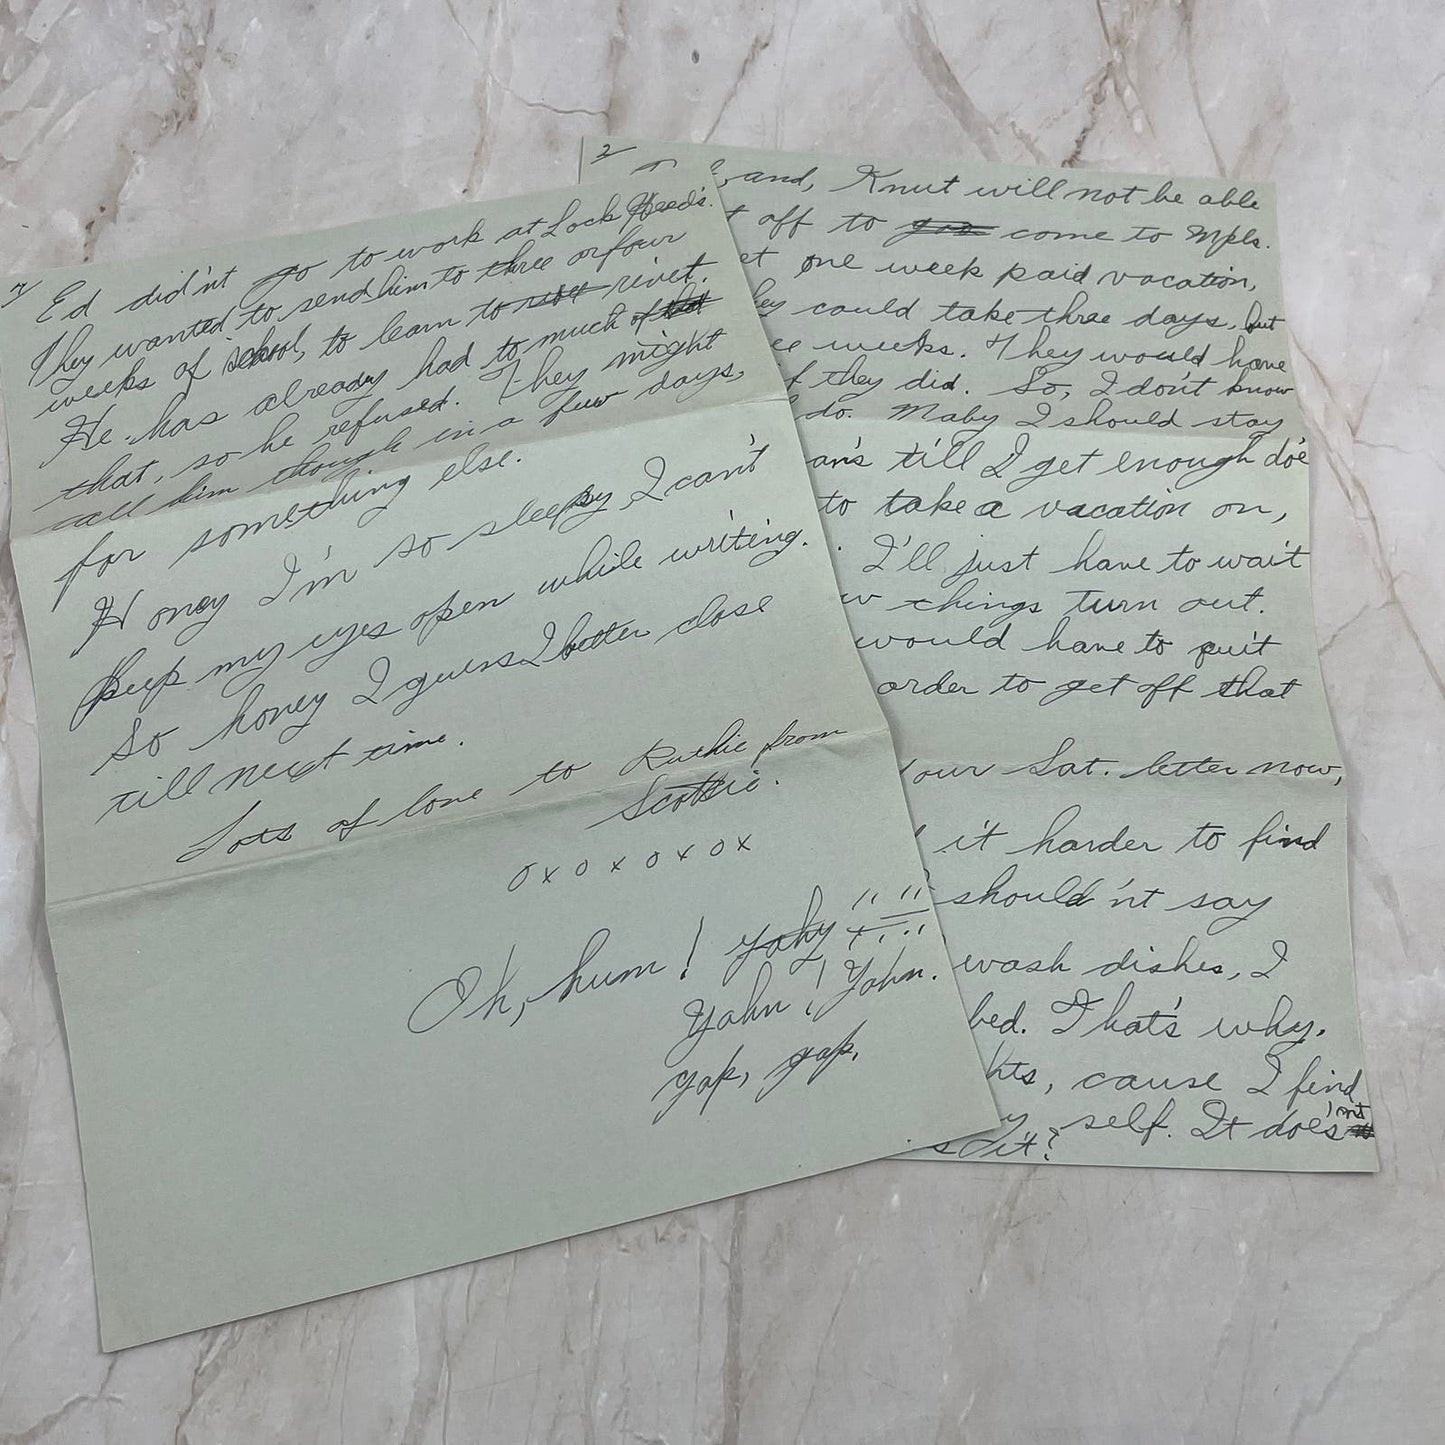 7
Ed did'nt go to work at Lock Heed's.
They wanted to send him to three or four
weeks of school, to learn to rivet.
He has already had to much of
that, so he refused. They might
call him though in a few days,
for something else.
Honey I'm so sleepy, I can't
keep my eyes open while writing.
So honey I guess I better close
till next time.
Lots of love to Ruthie from
Scottie.
oxoxoxox
Oh, hum! yahy
Yahn! Yahn.
Yap, yap,
2
and, Knut will not be able
off to come to Mpls.
one week paid vacation,
could take three days, but
weeks. They would have
if they did. So, I don't know
do. Maby I should stay
an's till I get enough do'e
to take a vacation on,
I'll just have to wait
things turn out.
would have to quit
order to get off that
your Sat. letter now,
it harder to find
should'nt say
wash dishes, I
bed. That's why,
cause I find
self. It does'nt
it?